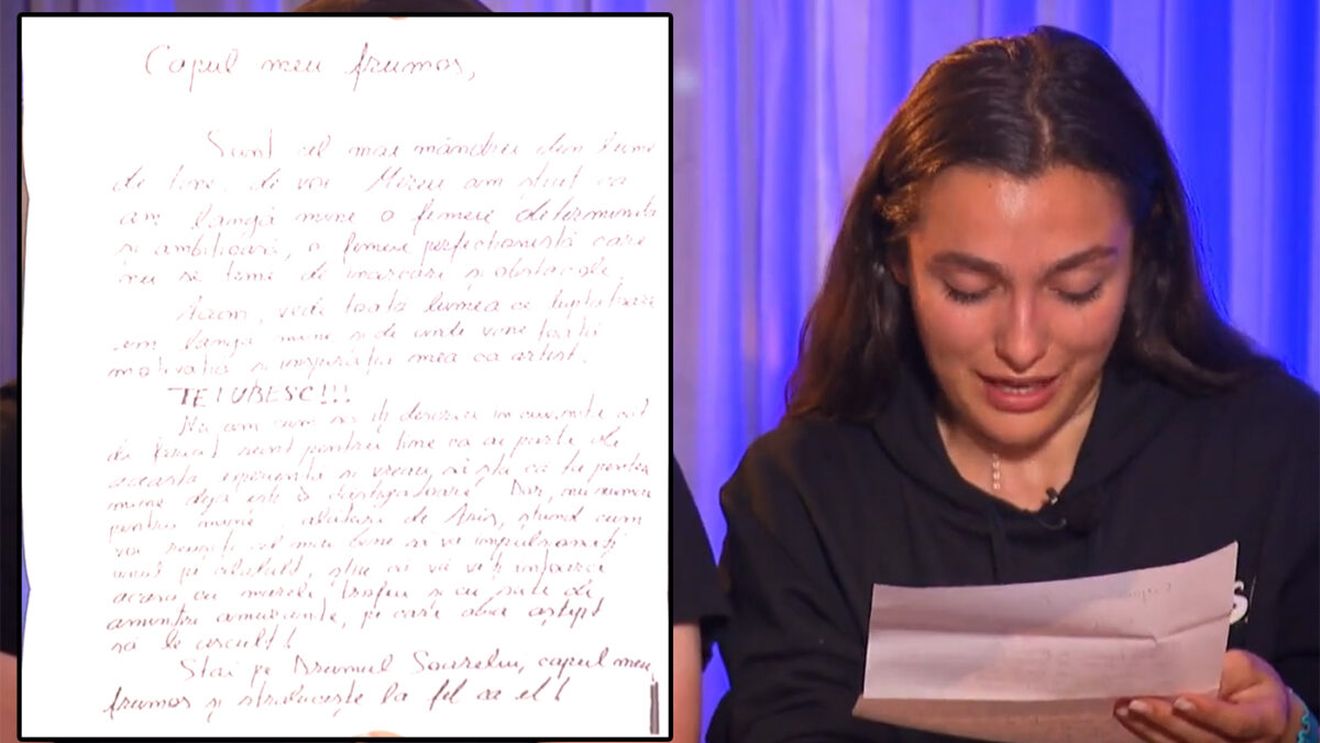 Capul meu frumos,
Sunt cel mai mândru din lume
de tine, de voi Mereu am știut ca
am langă mine o femeie determinata
si ambitioasă, o femeie perfectionistă care
nu se teme de incercari si obstacole.
Acum, vede toata lumea ce luptatoare
am langa mine si de unde vine toată
motivatia si inspirația mea ca artist.
TE IUBESC!!!
Nu am cum sa iți descriu in cuvinte cat
de fericit sunt pentru tine ca ai parte de
aceasta experienta si vreau să știi ca tu pentru
mine deja ești o castigatoare! Dar, nu numai
pentru mine, alături de Aris, stiind cum
va cel mai bine si va impulsionați
unul pe celalalt, stiu ca va veți intoarce
acasa cu marele trofeu si cu sute de
amintiri amuzante, pe care abia aștept
să le ascult!
Stai pe Drumul Soarelui, capul meu
frumos și strălucește la fel ca el!
S